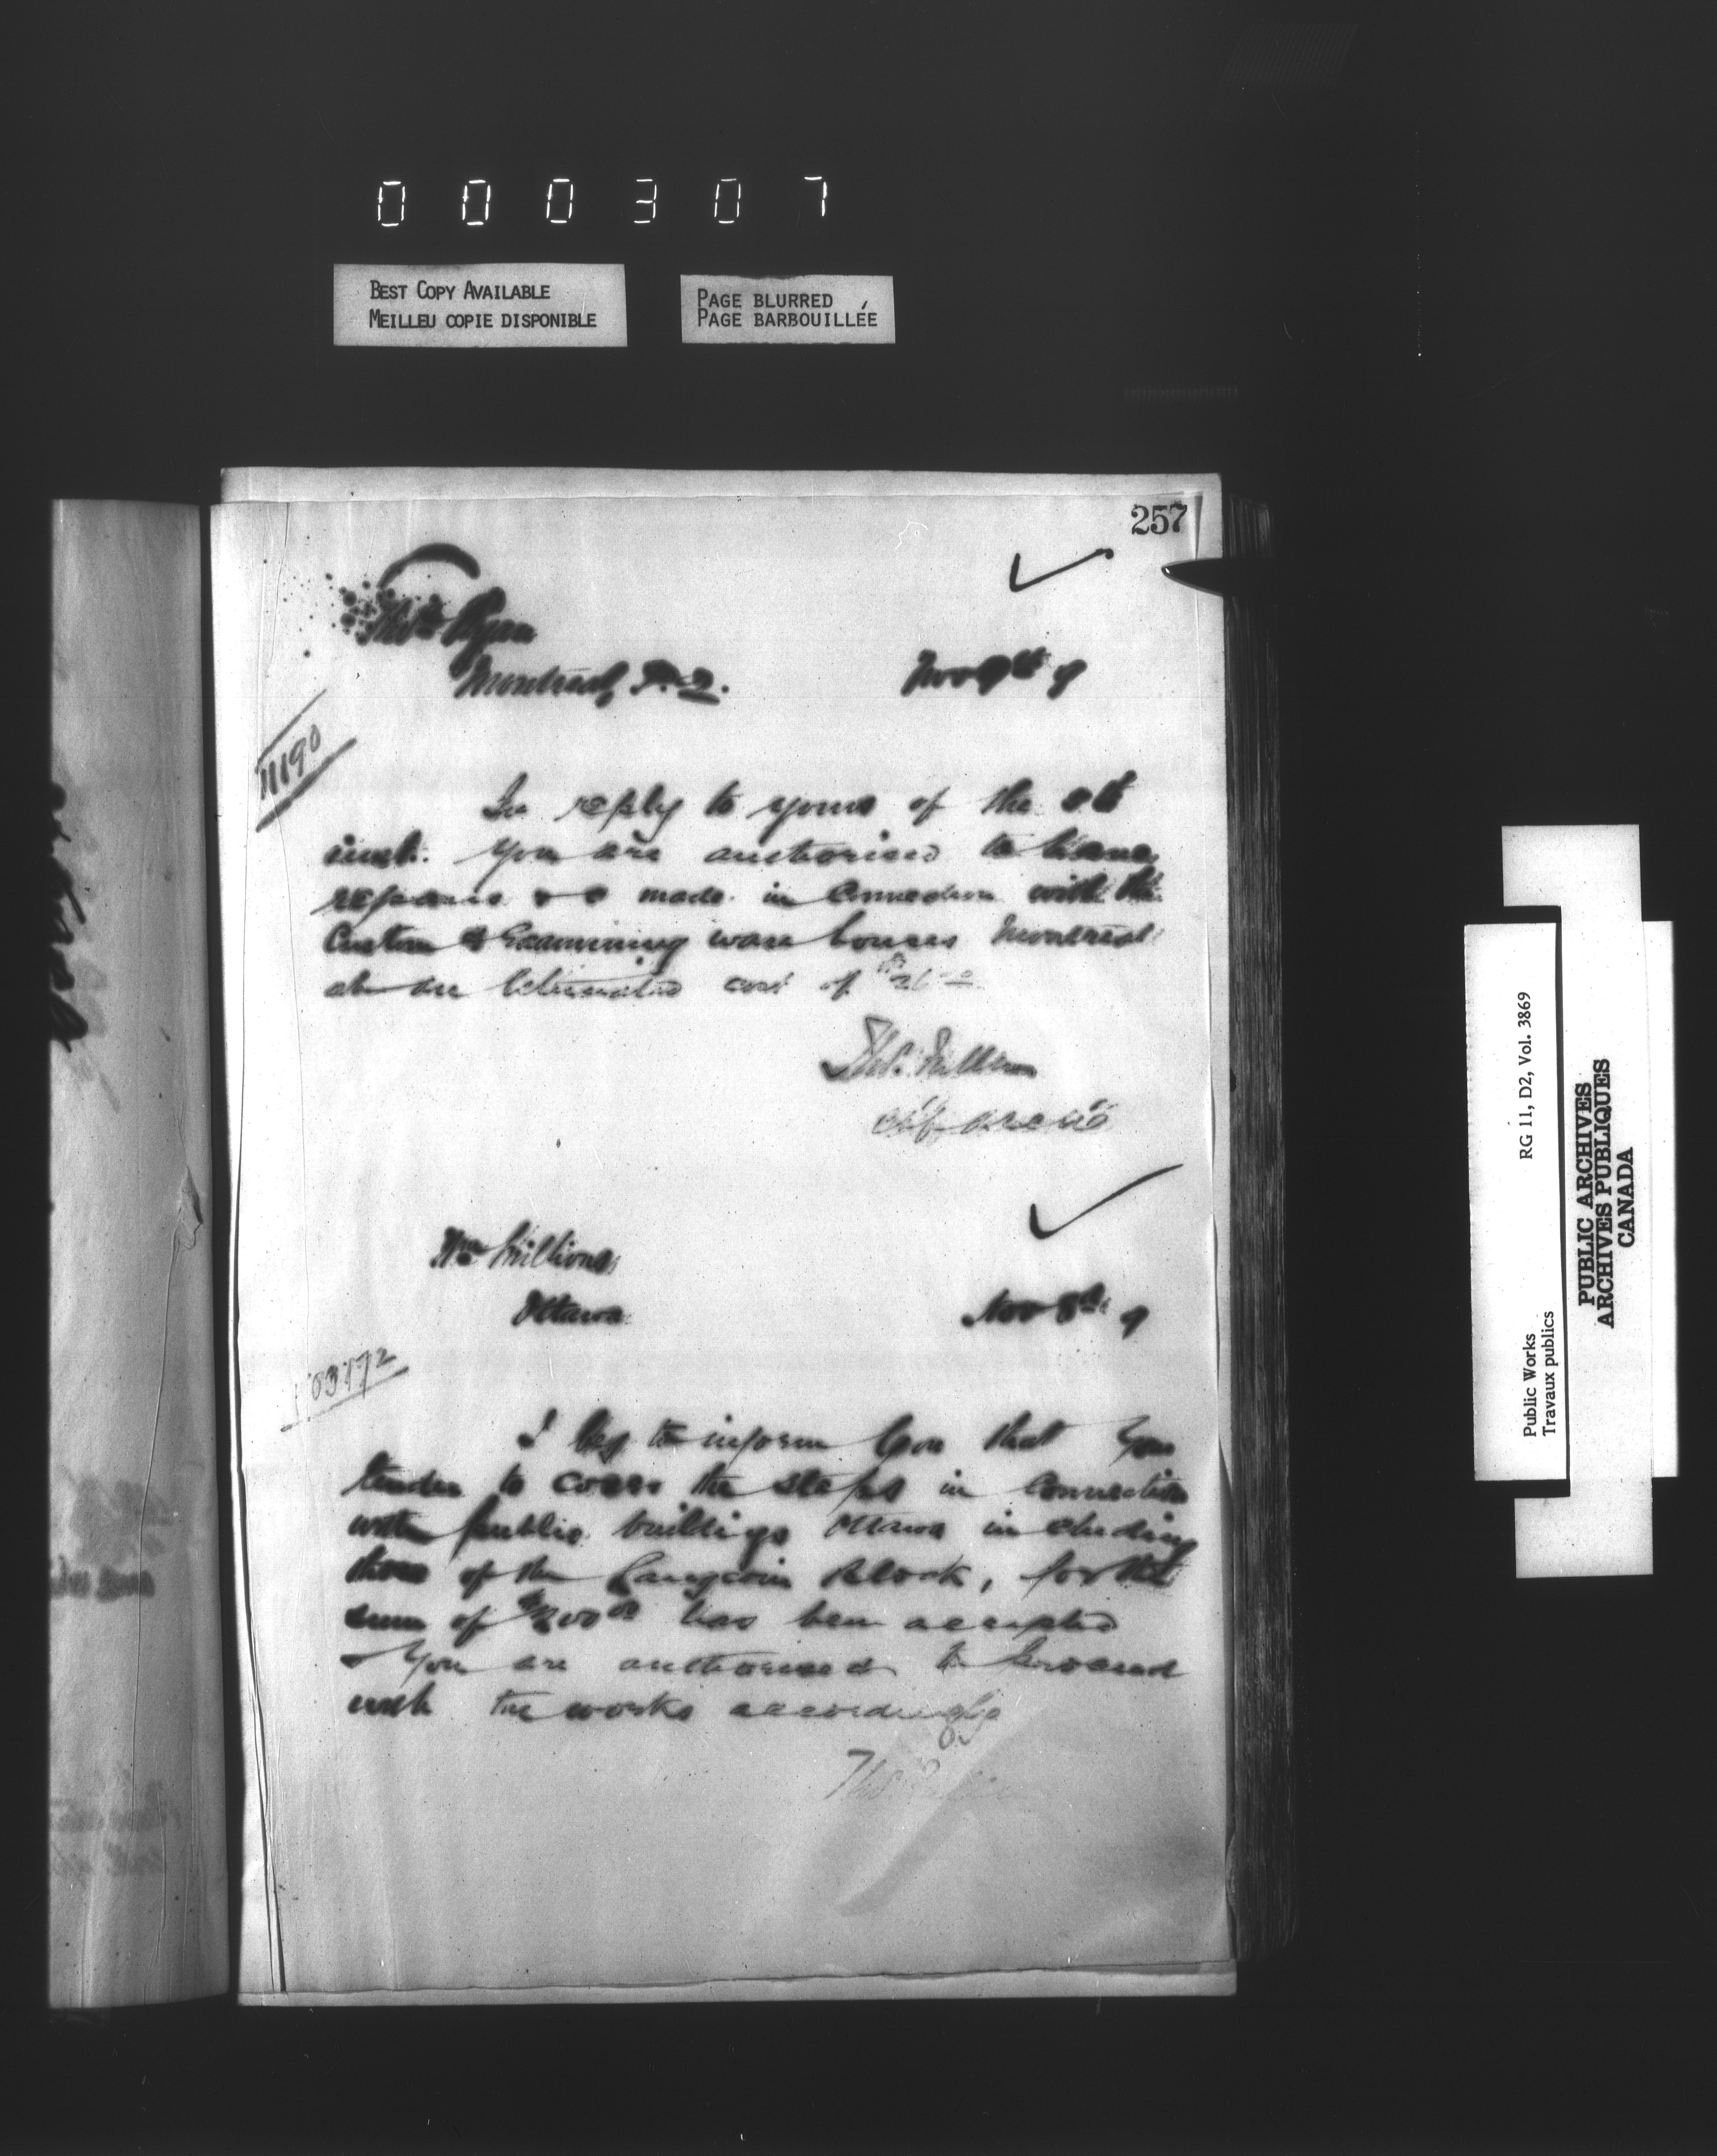 000307
BEST COPY AVAILABLE
MEILLEU COPIE DISPONIBLE
PAGE BLURRED
PAGE BARBOUILLÉE
257
Thos Ryan
Montreal, P.Q.
Nov 9th 9
11190
In reply to yours of the 8th
inst. you are authorised to have
repairs &c made in connection with the
Custom & Examining ware houses Montreal
at an estimated cost of
Thos. Fuller
Chf. Archt
Wm Millions
Ottawa
Nov 8th 9
103172
I beg to inform you that your
tender to cover the steps in connection
with public buildings Ottawa including
those of the Langevin Block, for the
sum of has been accepted
& you are authorised to proceed
with the works accordingly
Thos. Fuller
Public Works
Travaux publics
RG 11, D2, Vol. 3869
PUBLIC ARCHIVES
ARCHIVES PUBLIQUES
CANADA